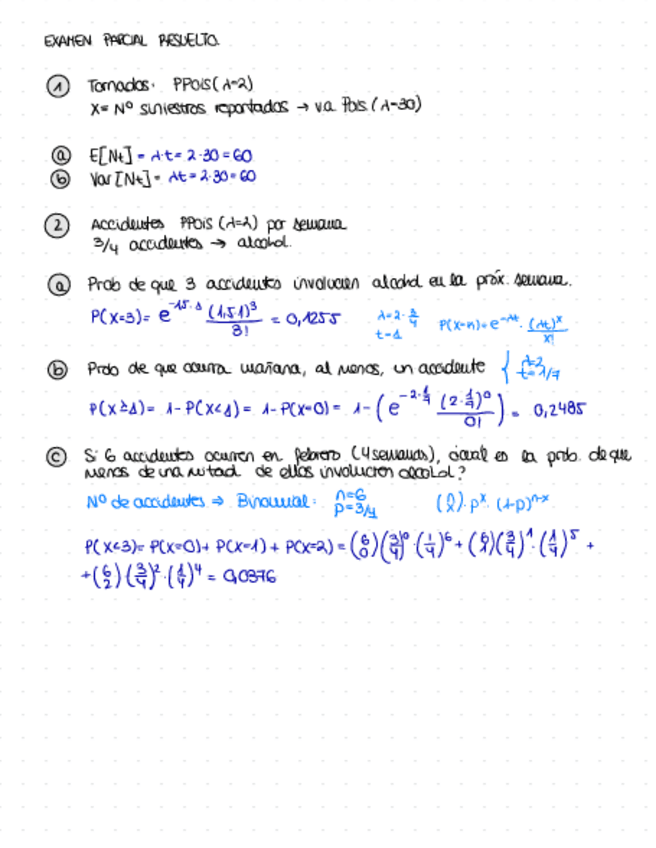 EXAMEN PARCIAL RESUELTO.
1 Tornados. PPois(λ=2)
X= Nº siniestros reportados → v.a. Pois (λ=30)
a E[Nt] = λ·t = 2·30 = 60
b Var[Nt] = λt = 2·30 = 60
2 Accidentes PPois (λ=2) por semana
3/4 accidentes → alcohol.
a Prob de que 3 accidentes involucren alcohol en la próx. semana.
P(X=3) = e^-1,5·1 (1,5·1)^3 / 3! = 0,1255 λ=2·3/4 t=1 P(X=n) = e^-λt · (λt)^x / x!
b Prob de que ocurra mañana, al menos, un accidente { λ=2 t=1/7
P(X≥1) = 1-P(X<1) = 1-P(X=0) = 1-(e^-2·1/7 (2·1/7)^0 / 0!) = 0,2485
c Si 6 accidentes ocurren en febrero (4 semanas), ¿cuál es la prob. de que
menos de una mitad de ellos involucren alcohol?
Nº de accidentes ⇒ Binomial: n=6 p=3/4 (n x)·p^x·(1-p)^n-x
P(X<3) = P(X=0) + P(X=1) + P(X=2) = (6 0)(3/4)^0·(1/4)^6 + (6 1)(3/4)^1·(1/4)^5 +
+(6 2)·(3/4)^2·(1/4)^4 = 0,0376